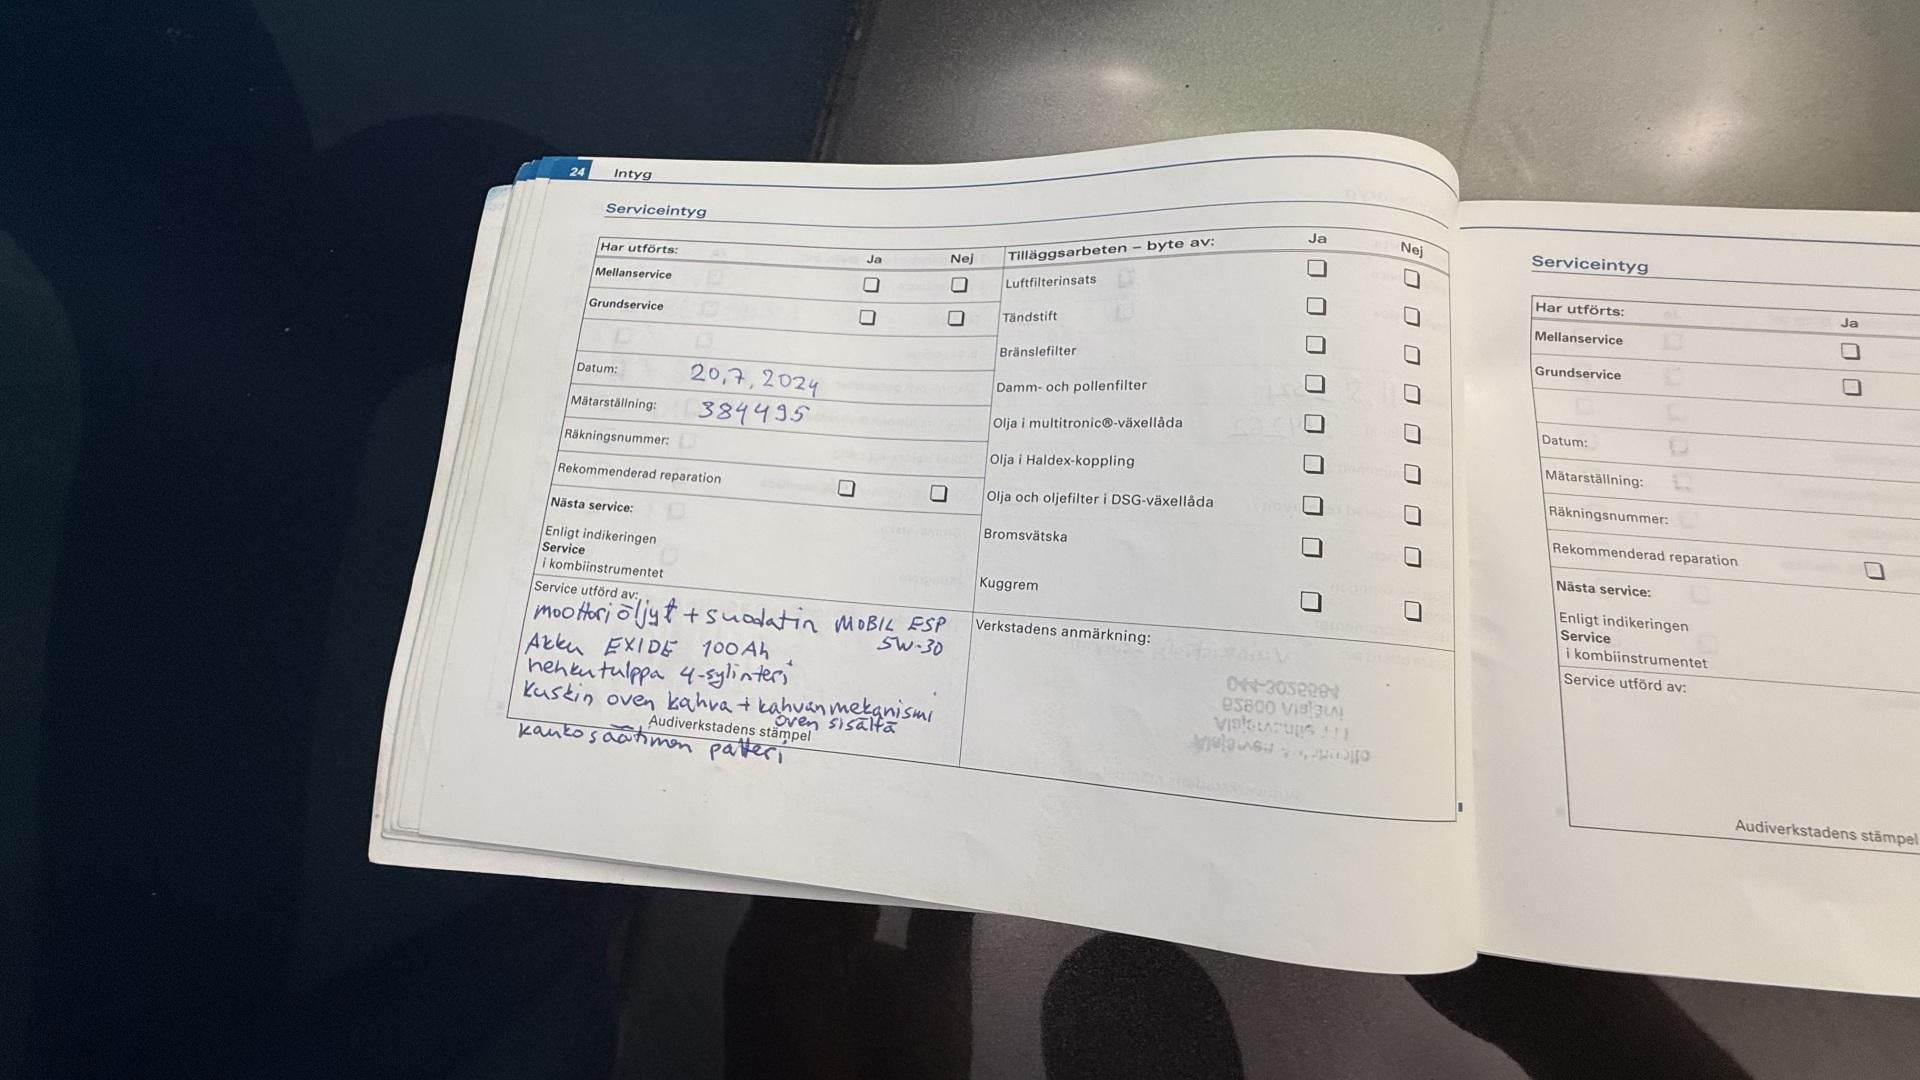 24 Intyg
Serviceintyg
Har utförts: Ja Nej
Mellanservice
Grundservice
Datum: 20.7.2024
Mätarställning: 384495
Räkningsnummer:
Rekommenderad reparation
Nästa service:
Enligt indikeringen
Service
i kombiinstrumentet
Service utförd av:
moottoriöljyt + suodatin MOBIL ESP
5W-30
Akku EXIDE 100Ah
hehkutulppa 4-sylinteri
Kuskin oven kahva + kahvan mekanismi
oven sisältä
Audiverkstadens stämpel
kaukosäätimen patteri
Tilläggsarbeten – byte av: Ja Nej
Luftfilterinsats
Tändstift
Bränslefilter
Damm- och pollenfilter
Olja i multitronic®-växellåda
Olja i Haldex-koppling
Olja och oljefilter i DSG-växellåda
Bromsvätska
Kuggrem
Verkstadens anmärkning:
Serviceintyg
Har utförts: Ja
Mellanservice
Grundservice
Datum:
Mätarställning:
Räkningsnummer:
Rekommenderad reparation
Nästa service:
Enligt indikeringen
Service
i kombiinstrumentet
Service utförd av:
Audiverkstadens stämpel